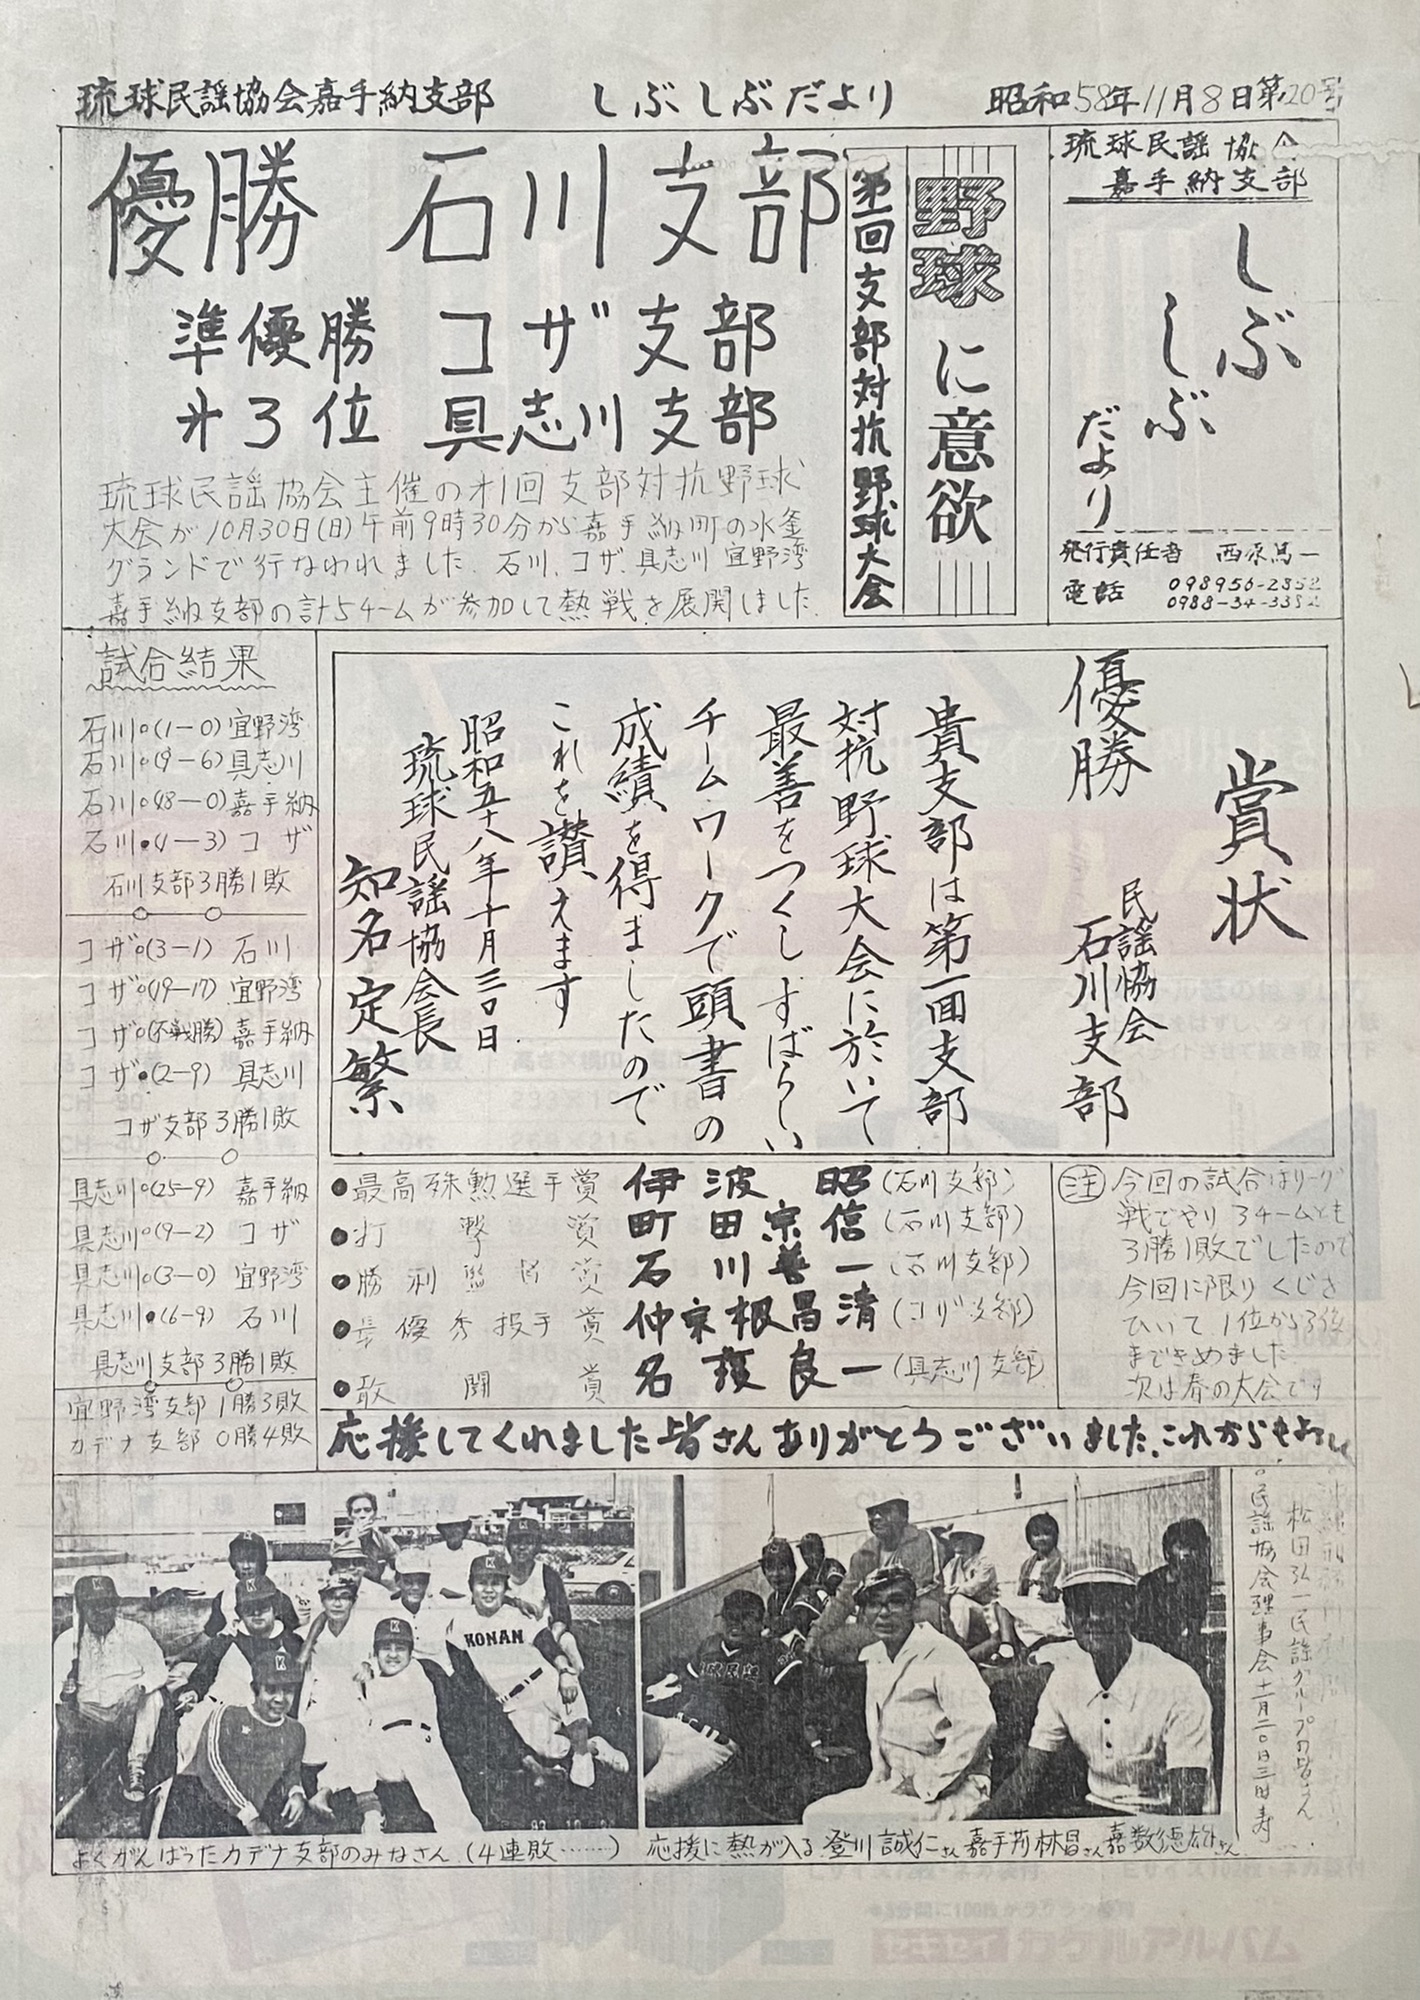 琉球民謡協会嘉手納支部　しぶしぶだより　昭和58年11月8日第20号
琉球民謡協会
嘉手納支部
しぶ
しぶ
だより
発行責任者　西原篤一
電話　098956-2852
0988-34-3352
野球に意欲
第一回支部対抗野球大会
優勝　石川支部
準優勝　コザ支部
才3位　具志川支部
琉球民謡協会主催の才1回支部対抗野球
大会が10月30日(日)午前9時30分から嘉手納町の水釜
グランドで行なわれました。石川、コザ、具志川 宜野湾
嘉手納支部の計5チームが参加して熱戦を展開しました
試合結果
石川○(1-0)宜野湾
石川○(9-6)具志川
石川○(18-0)嘉手納
石川●(4-3)コザ
石川支部3勝1敗
コザ○(3-1)石川
コザ○(19-17)宜野湾
コザ○(不戦勝)嘉手納
コザ●(2-9)具志川
コザ支部3勝1敗
具志川○(25-9)嘉手納
具志川○(9-2)コザ
具志川○(3-0)宜野湾
具志川●(6-9)石川
具志川支部3勝1敗
宜野湾支部1勝3敗
カデナ支部0勝4敗
賞状
優勝
民謡協会
石川支部
貴支部は第一回支部
対抗野球大会に於いて
最善をつくしすばらしい
チームワークで頭書の
成績を得ましたので
これを讃えます
昭和五十八年十月三〇日
琉球民謡協会長
知名定繁
●最高殊勲選手賞　伊波　昭(石川支部)
●打撃賞　町田宗信(石川支部)
●勝利監督賞　石川善一(石川支部)
●最優秀投手賞　仲宗根昌清(コザ支部)
●敢闘賞　名護良一(具志川支部)
注 今回の試合はリーグ
戦でやり3チームとも
3勝1敗でしたので
今回に限りくじを
ひいて1位から3位
まできめました
次は春の大会です
応援してくれました皆さんありがとうございました。これからもよろしく
松田弘一民謡グループの皆さん
○民謡協会理事会十一月二〇日三時
KONAN
よくがんばったカデナ支部のみなさん(4連敗……)
応援に熱が入る登川誠仁さん嘉手苅林昌さん嘉数徳雄さん